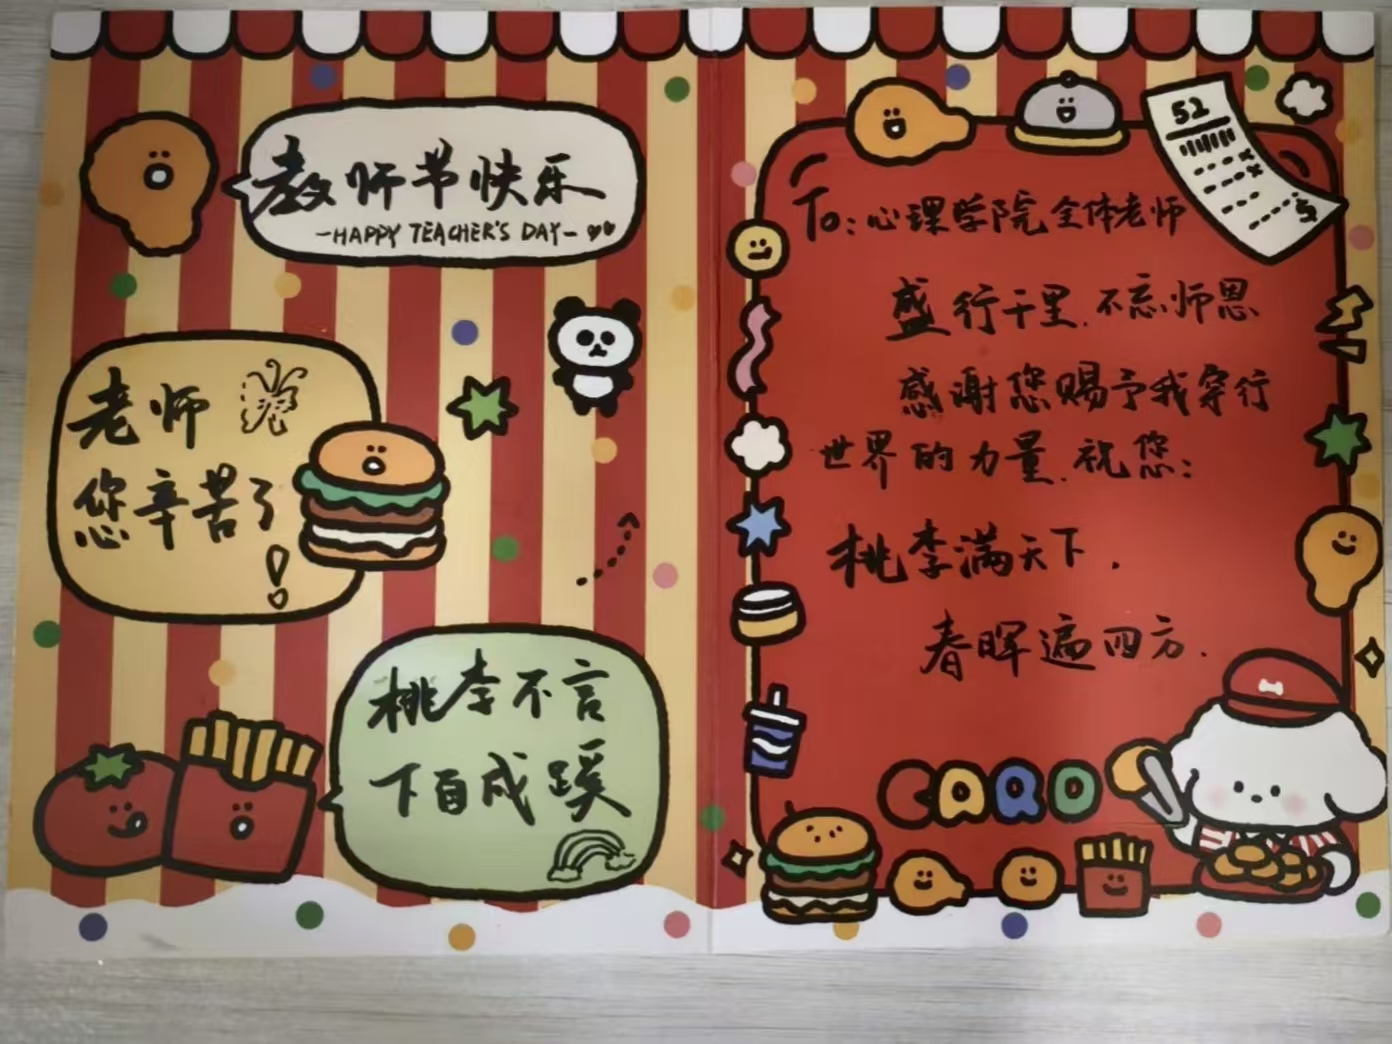 教师节快乐
-HAPPY TEACHER'S DAY-
老师
您辛苦了
!
桃李不言
下自成蹊
52
5
To:心理学院全体老师
盛行千里.不忘师恩
感谢您赐予我穿行
世界的力量.祝您:
桃李满天下.
春晖遍四方.
CARD